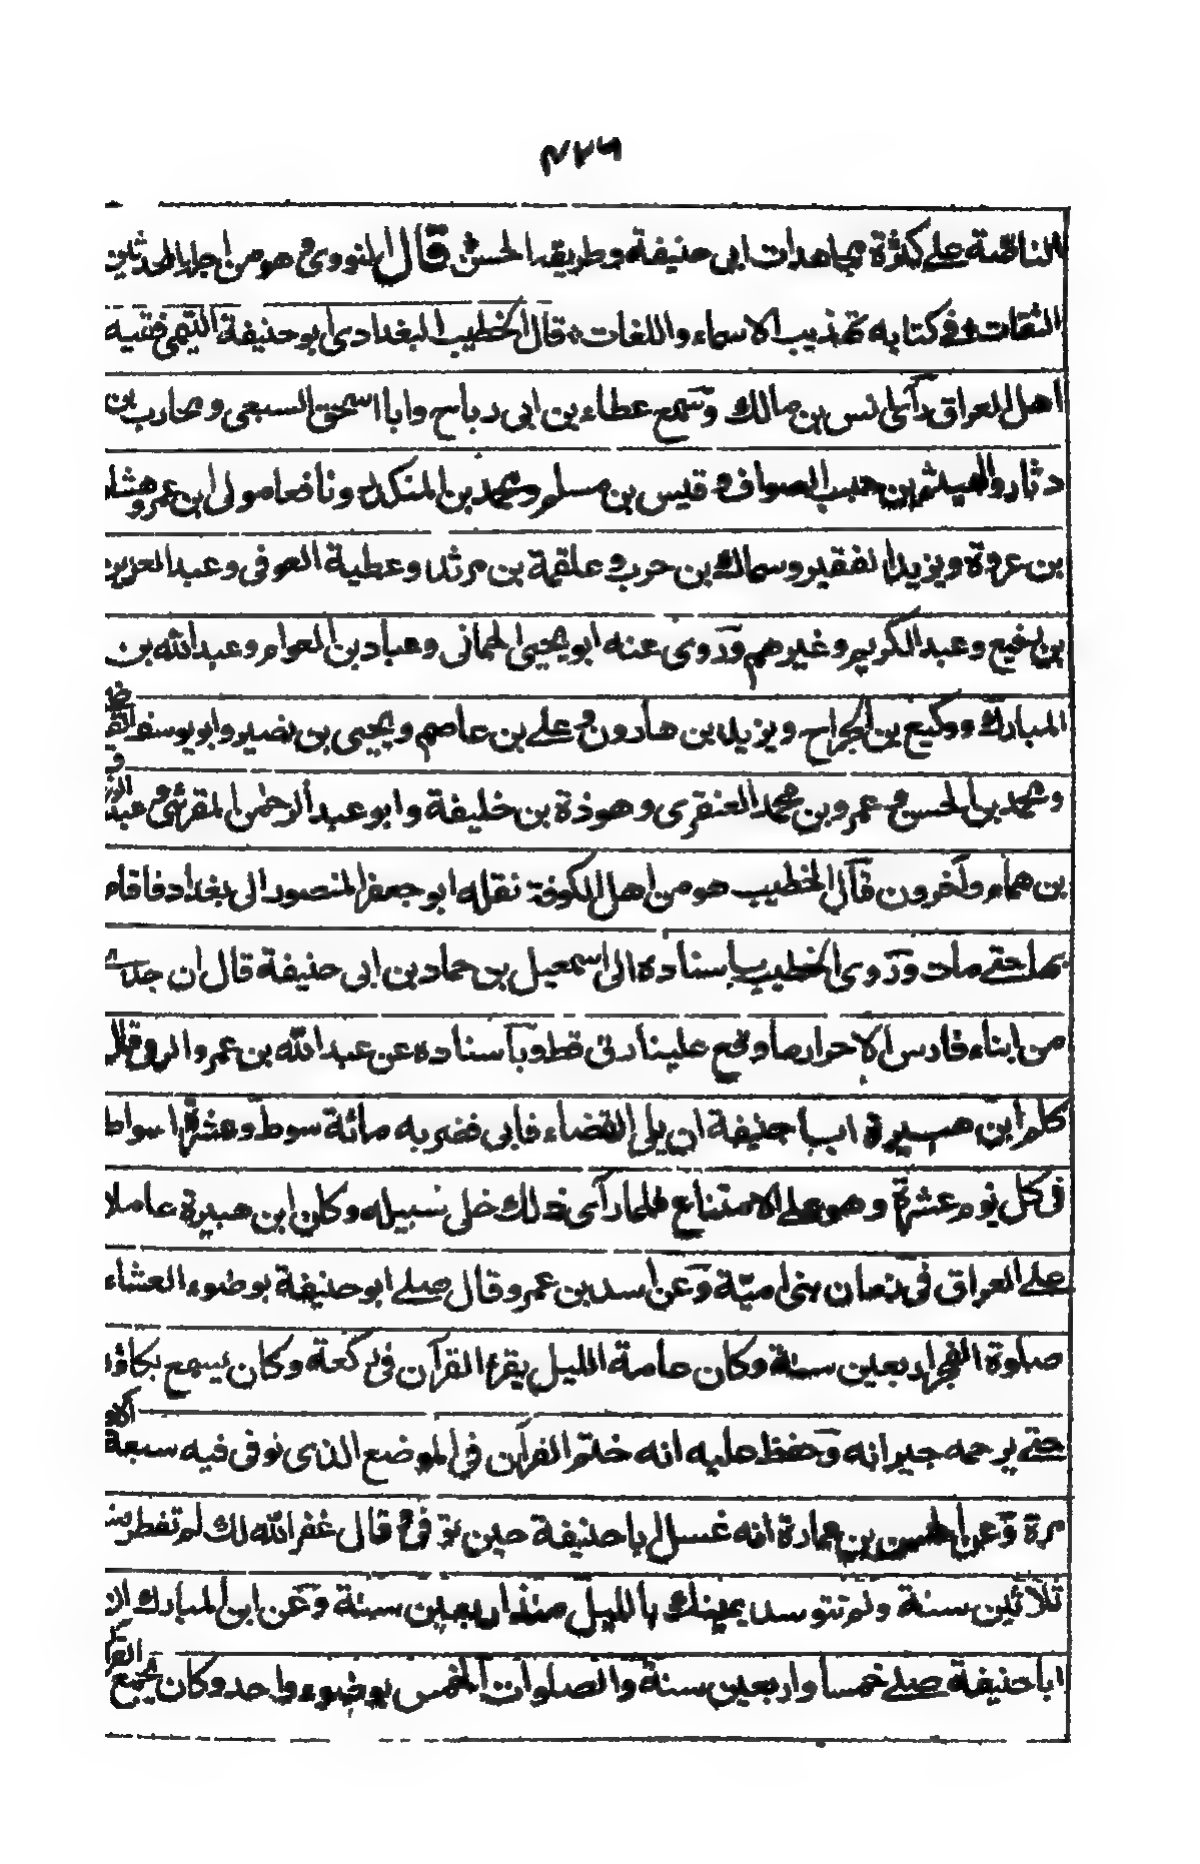 ۴۲۶
الناصّة على كثرة مجاهدات ابى حنيفة وطريقه الحسن قال النووى هو من اجلة المحدثين
الثقات وفى كتابه تهذيب الاسماء واللغات قال الخطيب البغدادى ابو حنيفة التيمى فقيه
اهل العراق رأى انس بن مالك وسمع عطاء بن ابى رباح وابا اسحق السبعى ومحارب بن
دثار والهيثم بن حبيب الصواف وقيس بن مسلم ومحمد بن المنكدر ونافعا مولى ابن عمر وهشام
بن عروة ويزيد الفقير وسماك بن حرب وعلقمة بن مرثد وعطية العوفى وعبد العزيز
بن رفيع وعبد الكريم وغيرهم وروى عنه ابو يحيى الحمانى وعباد بن العوام وعبد الله بن
المبارك ووكيع بن الجراح ويزيد بن هارون وعلى بن عاصم ويحيى بن نصير وابو يوسف القاضى
ومحمد بن الحسن وعمرو بن محمد العنقرى وهوذة بن خليفة وابو عبد الرحمن المقرئ وعبد الرزاق
بن همام وآخرون قال الخطيب هو من اهل الكوفة نقله ابو جعفر المنصور الى بغداد فاقام
بها حتى مات وروى الخطيب باسناده الى اسمعيل بن حماد بن ابى حنيفة قال ان جدى
من ابناء فارس الاحرار ما وقع علينا رق قط وباسناده عن عبد الله بن عمرو الرقى قال
كلم ابن هبيرة ابا حنيفة ان يلى القضاء فابى فضربه مائة سوط وعشرة اسواط
فى كل يوم عشرة وهو على الامتناع فلما رأى ذلك خلى سبيله وكان ابن هبيرة عاملا
على العراق فى زمان بنى امية وعن اسد بن عمرو قال صلى ابو حنيفة بوضوء العشاء
صلوة الفجر اربعين سنة وكان عامة الليل يقرء القرآن فى ركعة وكان يسمع بكاؤه
حتى يرحمه جيرانه وحفظ عليه انه ختم القرآن فى الموضع الذى توفى فيه سبعة آلاف
مرة وعن الحسن بن عمارة انه غسل ابا حنيفة حين توفى قال غفر الله لك لم تفطر منذ
ثلاثين سنة ولم تتوسد يمينك بالليل منذ اربعين سنة وعن ابن المبارك ان
ابا حنيفة صلى خمسا واربعين سنة والصلوات الخمس بوضوء واحد وكان يجمع القرآن